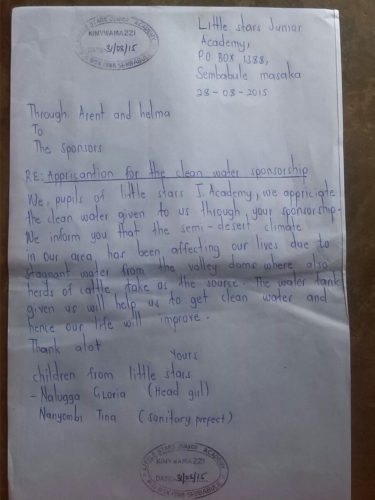 LITTLE STARS JUNIOR ACADEMY
KINYWAMAZZI
DATE: 31/08/15
Little stars Junior
Academy,
P.O. BOX 1388,
Sembabule masaka
28-08-2015
Through Arent and helma
To
The Sponsors
RE: Appricantion for the clean water sponsorship
We, pupils of little stars J. Academy, we appriciate
the clean water given to us through your sponsorship.
We inform you that the semi-desert climate
in our area has been affecting our lives due to
stagnant water from the valley dams where also
herds of cattle take as the source. The water tank
given us will help us to get clean water and
hence our life will improve.
Thank alot
Yours
children from little stars
- Nalugga Gloria (Head girl)
Nanyombi Tina (sanitary prefect)
KINYWAMAZZI
DATE: 31/08/15